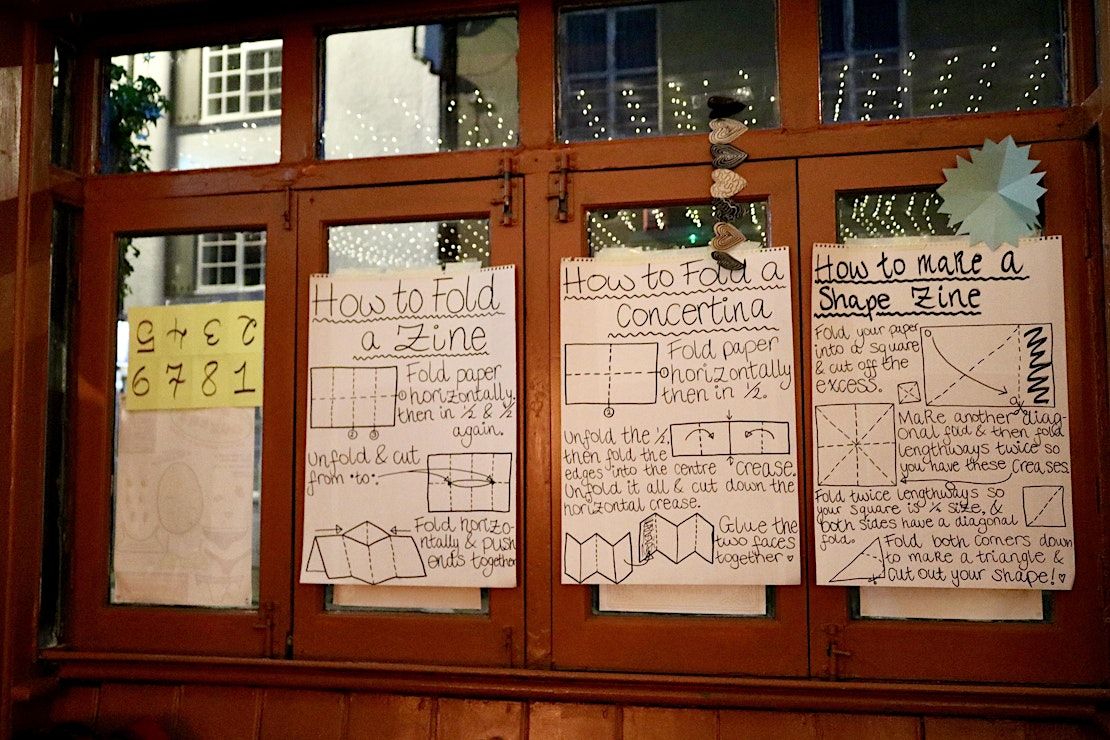 5 4 3 2
6 7 8 1
How to Fold
a Zine
Fold paper
horizontally,
then in ½ & ½
again.
1
2 3
Unfold & cut
from • to •
Fold horizo-
ntally & push
ends together
How to Fold a
Concertina
Fold paper
horizontally
then in ½.
1
2
Unfold the ½,
then fold the
edges into the centre crease.
Unfold it all & cut down the
horizontal crease.
Glue the
two faces
together ♥
How to make a
Shape Zine
Fold your paper
into a square
& cut off the
excess.
Make another diag-
onal fold & then fold
lengthways twice so
you have these creases.
Fold twice lengthways so
your square is ¼ size, &
both sides have a diagonal
fold.
Fold both corners down
to make a triangle &
cut out your shape! ♡